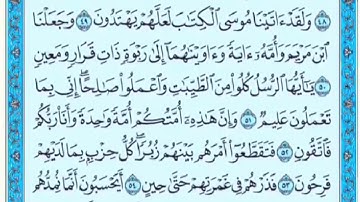 ٤٨ وَلَقَدْ ءَاتَيْنَا مُوسَى ٱلْكِتَٰبَ لَعَلَّهُمْ يَهْتَدُونَ ٤٩ وَجَعَلْنَا
ٱبْنَ مَرْيَمَ وَأُمَّهُۥٓ ءَايَةً وَءَاوَيْنَٰهُمَآ إِلَىٰ رَبْوَةٍ ذَاتِ قَرَارٍ وَمَعِينٍ
٥٠ يَٰٓأَيُّهَا ٱلرُّسُلُ كُلُوا۟ مِنَ ٱلطَّيِّبَٰتِ وَٱعْمَلُوا۟ صَٰلِحًا إِنِّى بِمَا
تَعْمَلُونَ عَلِيمٌ ٥١ وَإِنَّ هَٰذِهِۦٓ أُمَّتُكُمْ أُمَّةً وَٰحِدَةً وَأَنَا۠ رَبُّكُمْ
فَٱتَّقُونِ ٥٢ فَتَقَطَّعُوٓا۟ أَمْرَهُم بَيْنَهُمْ زُبُرًا كُلُّ حِزْبٍۭ بِمَا لَدَيْهِمْ
فَرِحُونَ ٥٣ فَذَرْهُمْ فِى غَمْرَتِهِمْ حَتَّىٰ حِينٍ ٥٤ أَيَحْسَبُونَ أَنَّمَا نُمِدُّهُم